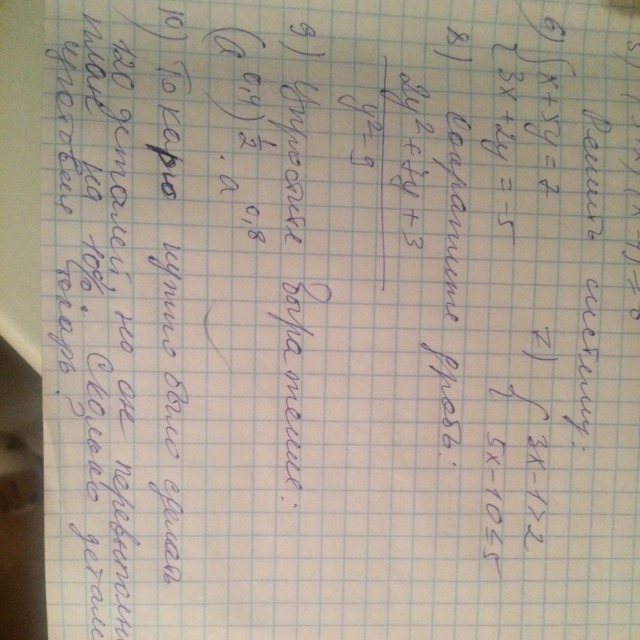 Решить систему:
6) { x + 5y = 8
{ 3x + 2y = -5
7) { 3x - 1 > 2
5x - 10 ≤ 5
8) Сократите дробь:
2y² + 7y + 3
y² - 9
9) Упростите выражение:
(a^0,4)^½ · a^0,8
10) Токарю нужно было сделать
120 деталей, но он перевыполнил
план на 10%. Сколько деталей
токарь?